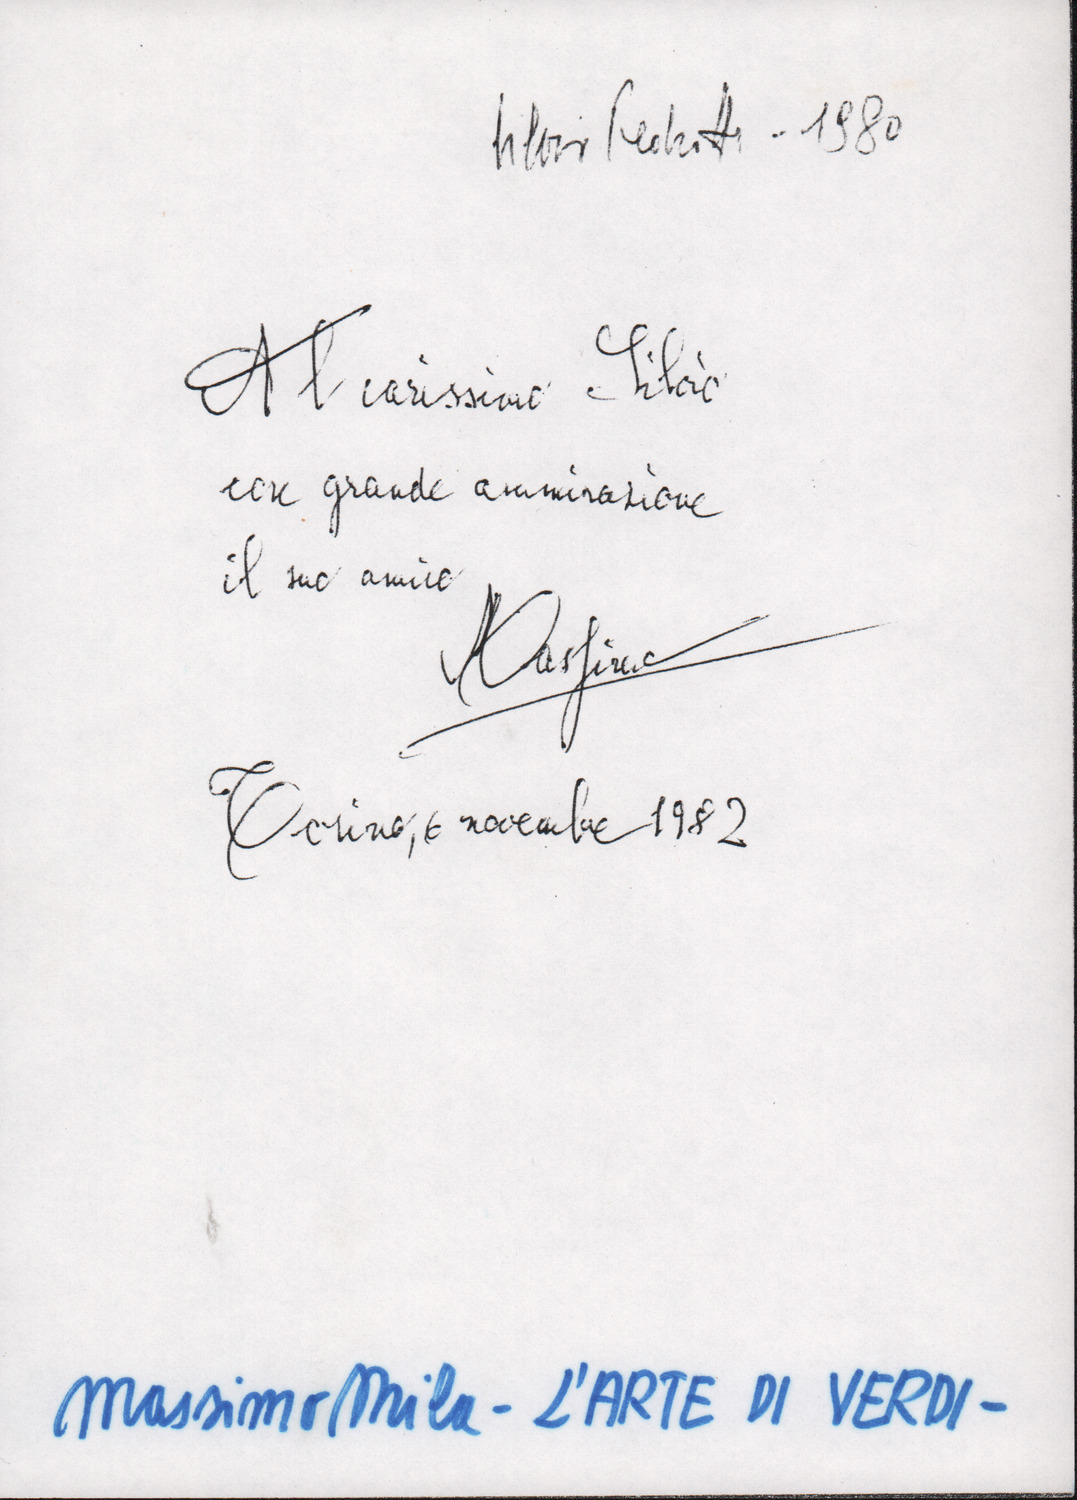 Silvio Pedrotti - 1980
Al carissimo Silvio
con grande ammirazione
il suo amico
Massimo
Torino, 6 novembre 1982
Massimo Mila - L'ARTE DI VERDI -